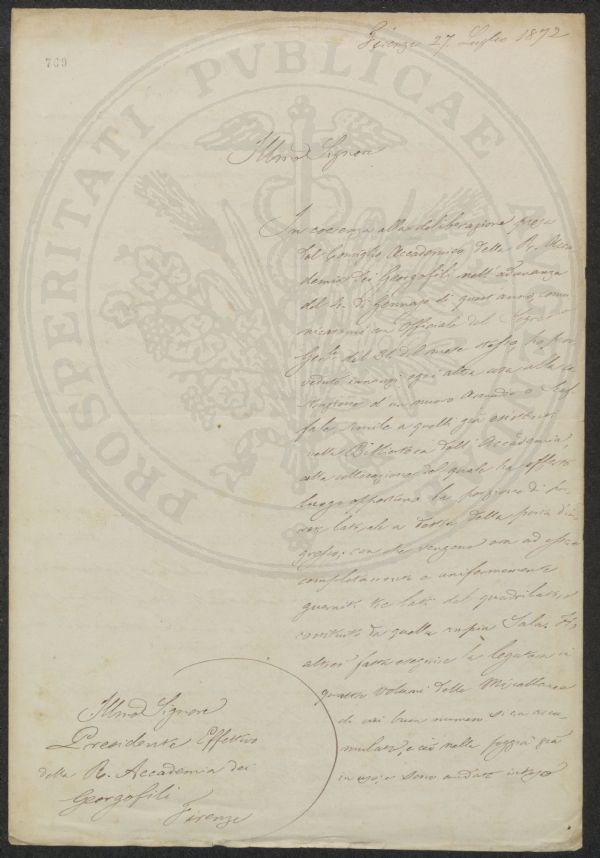 Firenze 27. Luglio 1872
769
PROSPERITATI PVBLICAE
Illmo Signore
In coerenza alla deliberazione presa
dal Consiglio Accademico della R. Acca
demia dei Georgofili nell'adunanza
del di Gennajo di quest'anno comu
nicatami con Officiale del Segret
del 31 del mese stesso, ho prov
veduto innanzi ogni altra cosa alla
d'un nuovo Armadio o Scaf
fale simile a quelli già esistenti
nella Biblioteca dell'Accademia,
alla collocazione del quale ha offerto
luogo opportuno la porzione di pa
rete laterale a destra della porta d'in
gresso; con che vengono ora ad essere
completamente e uniformemente
guarniti tre lati del quadrilatero
costituito da quella ampia Sala. Ho
altresì fatto eseguire la legatura di
quattro volumi delle Miscellanee
di cui buon numero si era accu
mulato, e ciò nella foggia già
in uso, e sono andato
Illmo Signore
Presidente Effettivo
della R. Accademia dei
Georgofili
Firenze